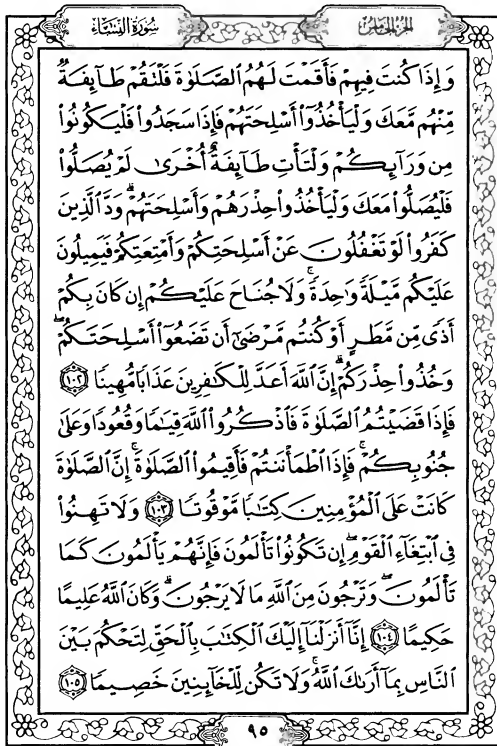 الجزء الخامس
سُورَةُ النِّسَاءِ
وَإِذَا كُنتَ فِيهِمْ فَأَقَمْتَ لَهُمُ ٱلصَّلَوٰةَ فَلْتَقُمْ طَآئِفَةٌ
مِّنْهُم مَّعَكَ وَلْيَأْخُذُوٓا۟ أَسْلِحَتَهُمْ فَإِذَا سَجَدُوا۟ فَلْيَكُونُوا۟
مِن وَرَآئِكُمْ وَلْتَأْتِ طَآئِفَةٌ أُخْرَىٰ لَمْ يُصَلُّوا۟
فَلْيُصَلُّوا۟ مَعَكَ وَلْيَأْخُذُوا۟ حِذْرَهُمْ وَأَسْلِحَتَهُمْ ۗ وَدَّ ٱلَّذِينَ
كَفَرُوا۟ لَوْ تَغْفُلُونَ عَنْ أَسْلِحَتِكُمْ وَأَمْتِعَتِكُمْ فَيَمِيلُونَ
عَلَيْكُم مَّيْلَةً وَٰحِدَةً ۚ وَلَا جُنَاحَ عَلَيْكُمْ إِن كَانَ بِكُمْ
أَذًى مِّن مَّطَرٍ أَوْ كُنتُم مَّرْضَىٰٓ أَن تَضَعُوٓا۟ أَسْلِحَتَكُمْ ۖ
وَخُذُوا۟ حِذْرَكُمْ ۗ إِنَّ ٱللَّهَ أَعَدَّ لِلْكَٰفِرِينَ عَذَابًا مُّهِينًا ١٠٢
فَإِذَا قَضَيْتُمُ ٱلصَّلَوٰةَ فَٱذْكُرُوا۟ ٱللَّهَ قِيَٰمًا وَقُعُودًا وَعَلَىٰ
جُنُوبِكُمْ ۚ فَإِذَا ٱطْمَأْنَنتُمْ فَأَقِيمُوا۟ ٱلصَّلَوٰةَ ۚ إِنَّ ٱلصَّلَوٰةَ
كَانَتْ عَلَى ٱلْمُؤْمِنِينَ كِتَٰبًا مَّوْقُوتًا ١٠٣ وَلَا تَهِنُوا۟
فِى ٱبْتِغَآءِ ٱلْقَوْمِ ۖ إِن تَكُونُوا۟ تَأْلَمُونَ فَإِنَّهُمْ يَأْلَمُونَ كَمَا
تَأْلَمُونَ ۖ وَتَرْجُونَ مِنَ ٱللَّهِ مَا لَا يَرْجُونَ ۗ وَكَانَ ٱللَّهُ عَلِيمًا
حَكِيمًا ١٠٤ إِنَّآ أَنزَلْنَآ إِلَيْكَ ٱلْكِتَٰبَ بِٱلْحَقِّ لِتَحْكُمَ بَيْنَ
ٱلنَّاسِ بِمَآ أَرَىٰكَ ٱللَّهُ ۚ وَلَا تَكُن لِّلْخَآئِنِينَ خَصِيمًا ١٠٥
٩٥